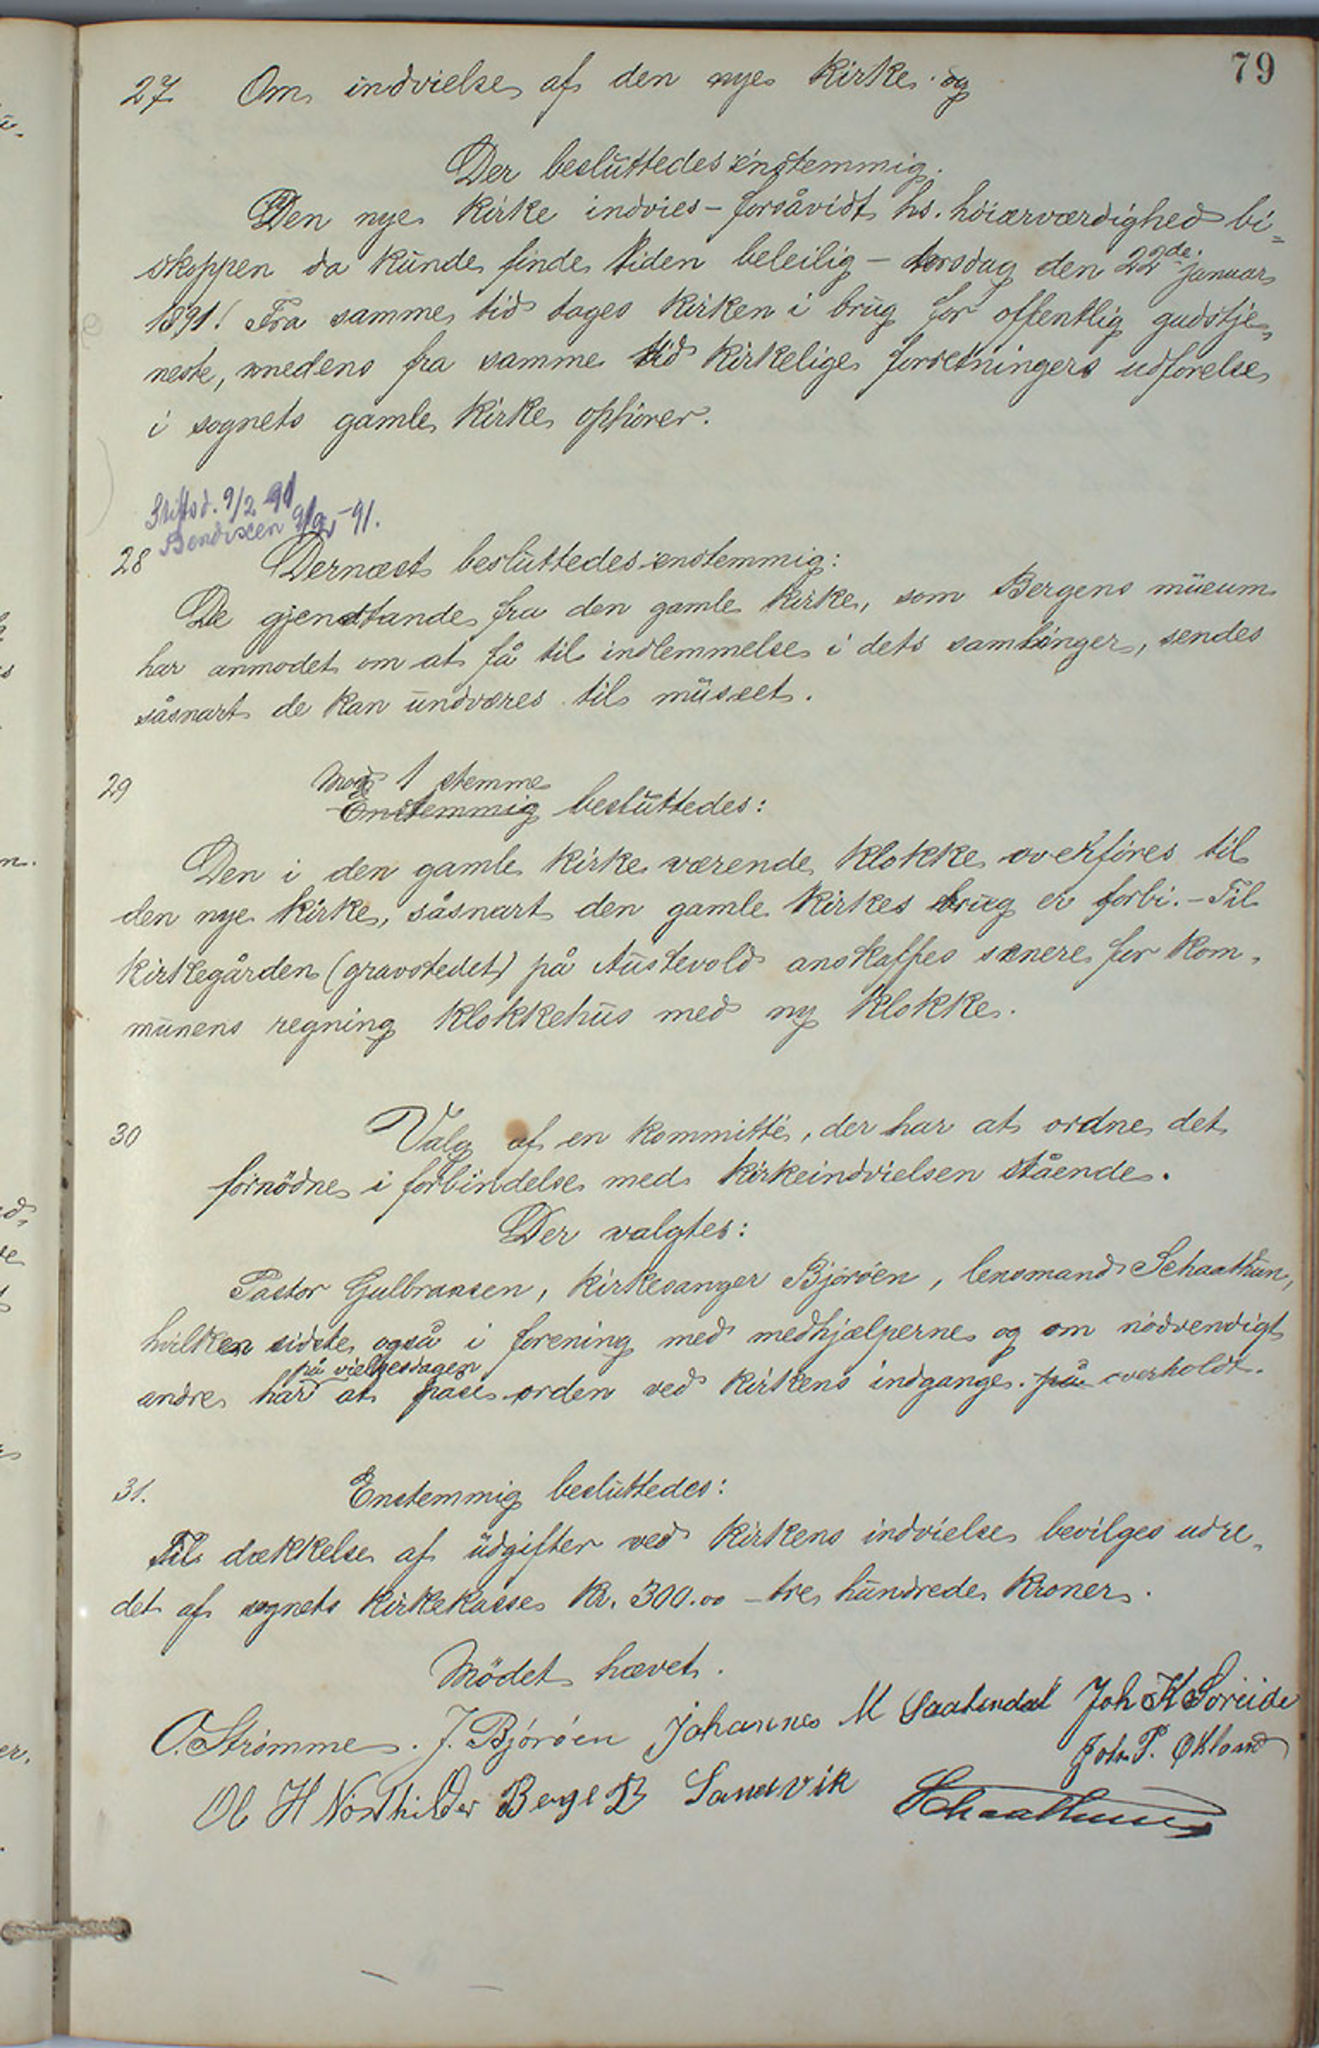 79
27 Om indvielse af den nye kirke og
Der besluttedes enstemmig.
Den nye kirke indvies – forsåvidt hs. höiærværdighed bi-
skoppen da kunde finde tiden beleilig – torsdag den 22de januar
1891! Fra samme tid tages kirken i brug for offentlig gudstje-
neste, medens fra samme tid kirkelige forretningers udförelse
i sognets gamle kirke ophörer.
Stiftsd. 9/2 91
Bendixen 9/2 -91.
28 Dernæst besluttedes enstemmig:
De gjenstande fra den gamle kirke, som Bergens müeum
har anmodet om at få til indlemmelse i dets samlinger, sendes
såsnart de kan undværes til müseet.
29 Mod 1 stemme
Enstemmig besluttedes:
Den i den gamle kirke værende klokke overföres til
den nye kirke, såsnart den gamle kirkes brug er forbi. – Til
kirkegården (gravstedet) på Austevold anskaffes senere for kom-
munens regning klokkehus med ny klokke.
30 Valg af en kommitté, der har at ordne det
fornödne i forbindelse med kirkeindvielsen stående.
Der valgtes:
Pastor Gulbransen, kirkesanger Björöen, lensmand Schaathun,
hvilken sidste også i forening med medhjælperne og om nödvendigt
på vielsesdagen
andre har at passe orden ved kirkens indgange på overholdt.
31. Enstemmig besluttedes:
Til dækkelse af udgifter ved kirkens indvielse bevilges udre-
det af sognets kirkekasse Kr. 300.00 – tre hundrede kroner.
Mödet hævet.
O. Strömme. J. Björöen Johannes M Joh K Söreide
Joh. P. Økland
Ol H Børge B Sandvik Schaathun